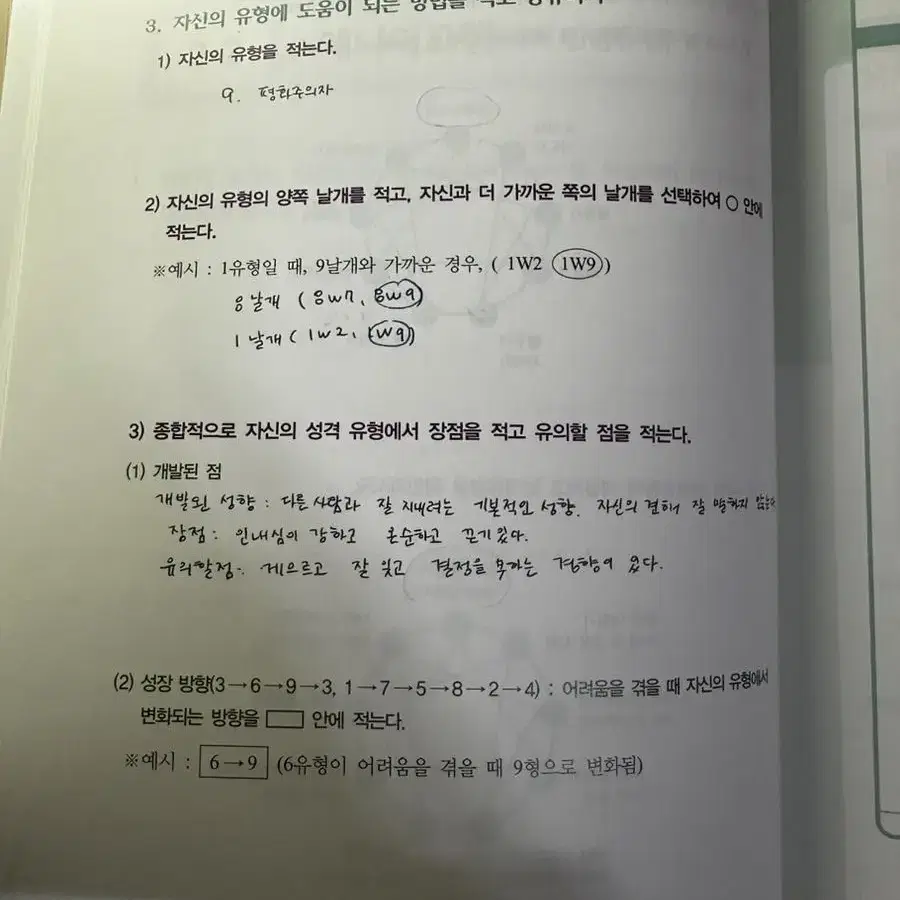 3. 자신의 유형에 도움이 되는 방법을 적고
1) 자신의 유형을 적는다.
9. 평화주의자
2) 자신의 유형의 양쪽 날개를 적고, 자신과 더 가까운 쪽의 날개를 선택하여 ○ 안에
적는다.
※예시 : 1유형일 때, 9날개와 가까운 경우, ( 1W2 1W9 )
8날개 ( 8w7, 8w9)
1날개 ( 1w2, 1w9)
3) 종합적으로 자신의 성격 유형에서 장점을 적고 유의할 점을 적는다.
(1) 개발된 점
개발된 성향 : 다른 사람과 잘 지내려는 기본적인 성향. 자신의 견해 잘 말하지 않는다
장점 : 인내심이 강하고 온순하고 끈기있다.
유의할점 : 게으르고 잘 잊고 결정을 못하는 경향이 있다.
(2) 성장 방향(3→6→9→3, 1→7→5→8→2→4) : 어려움을 겪을 때 자신의 유형에서
변화되는 방향을 □ 안에 적는다.
※예시 : 6→9 (6유형이 어려움을 겪을 때 9형으로 변화됨)